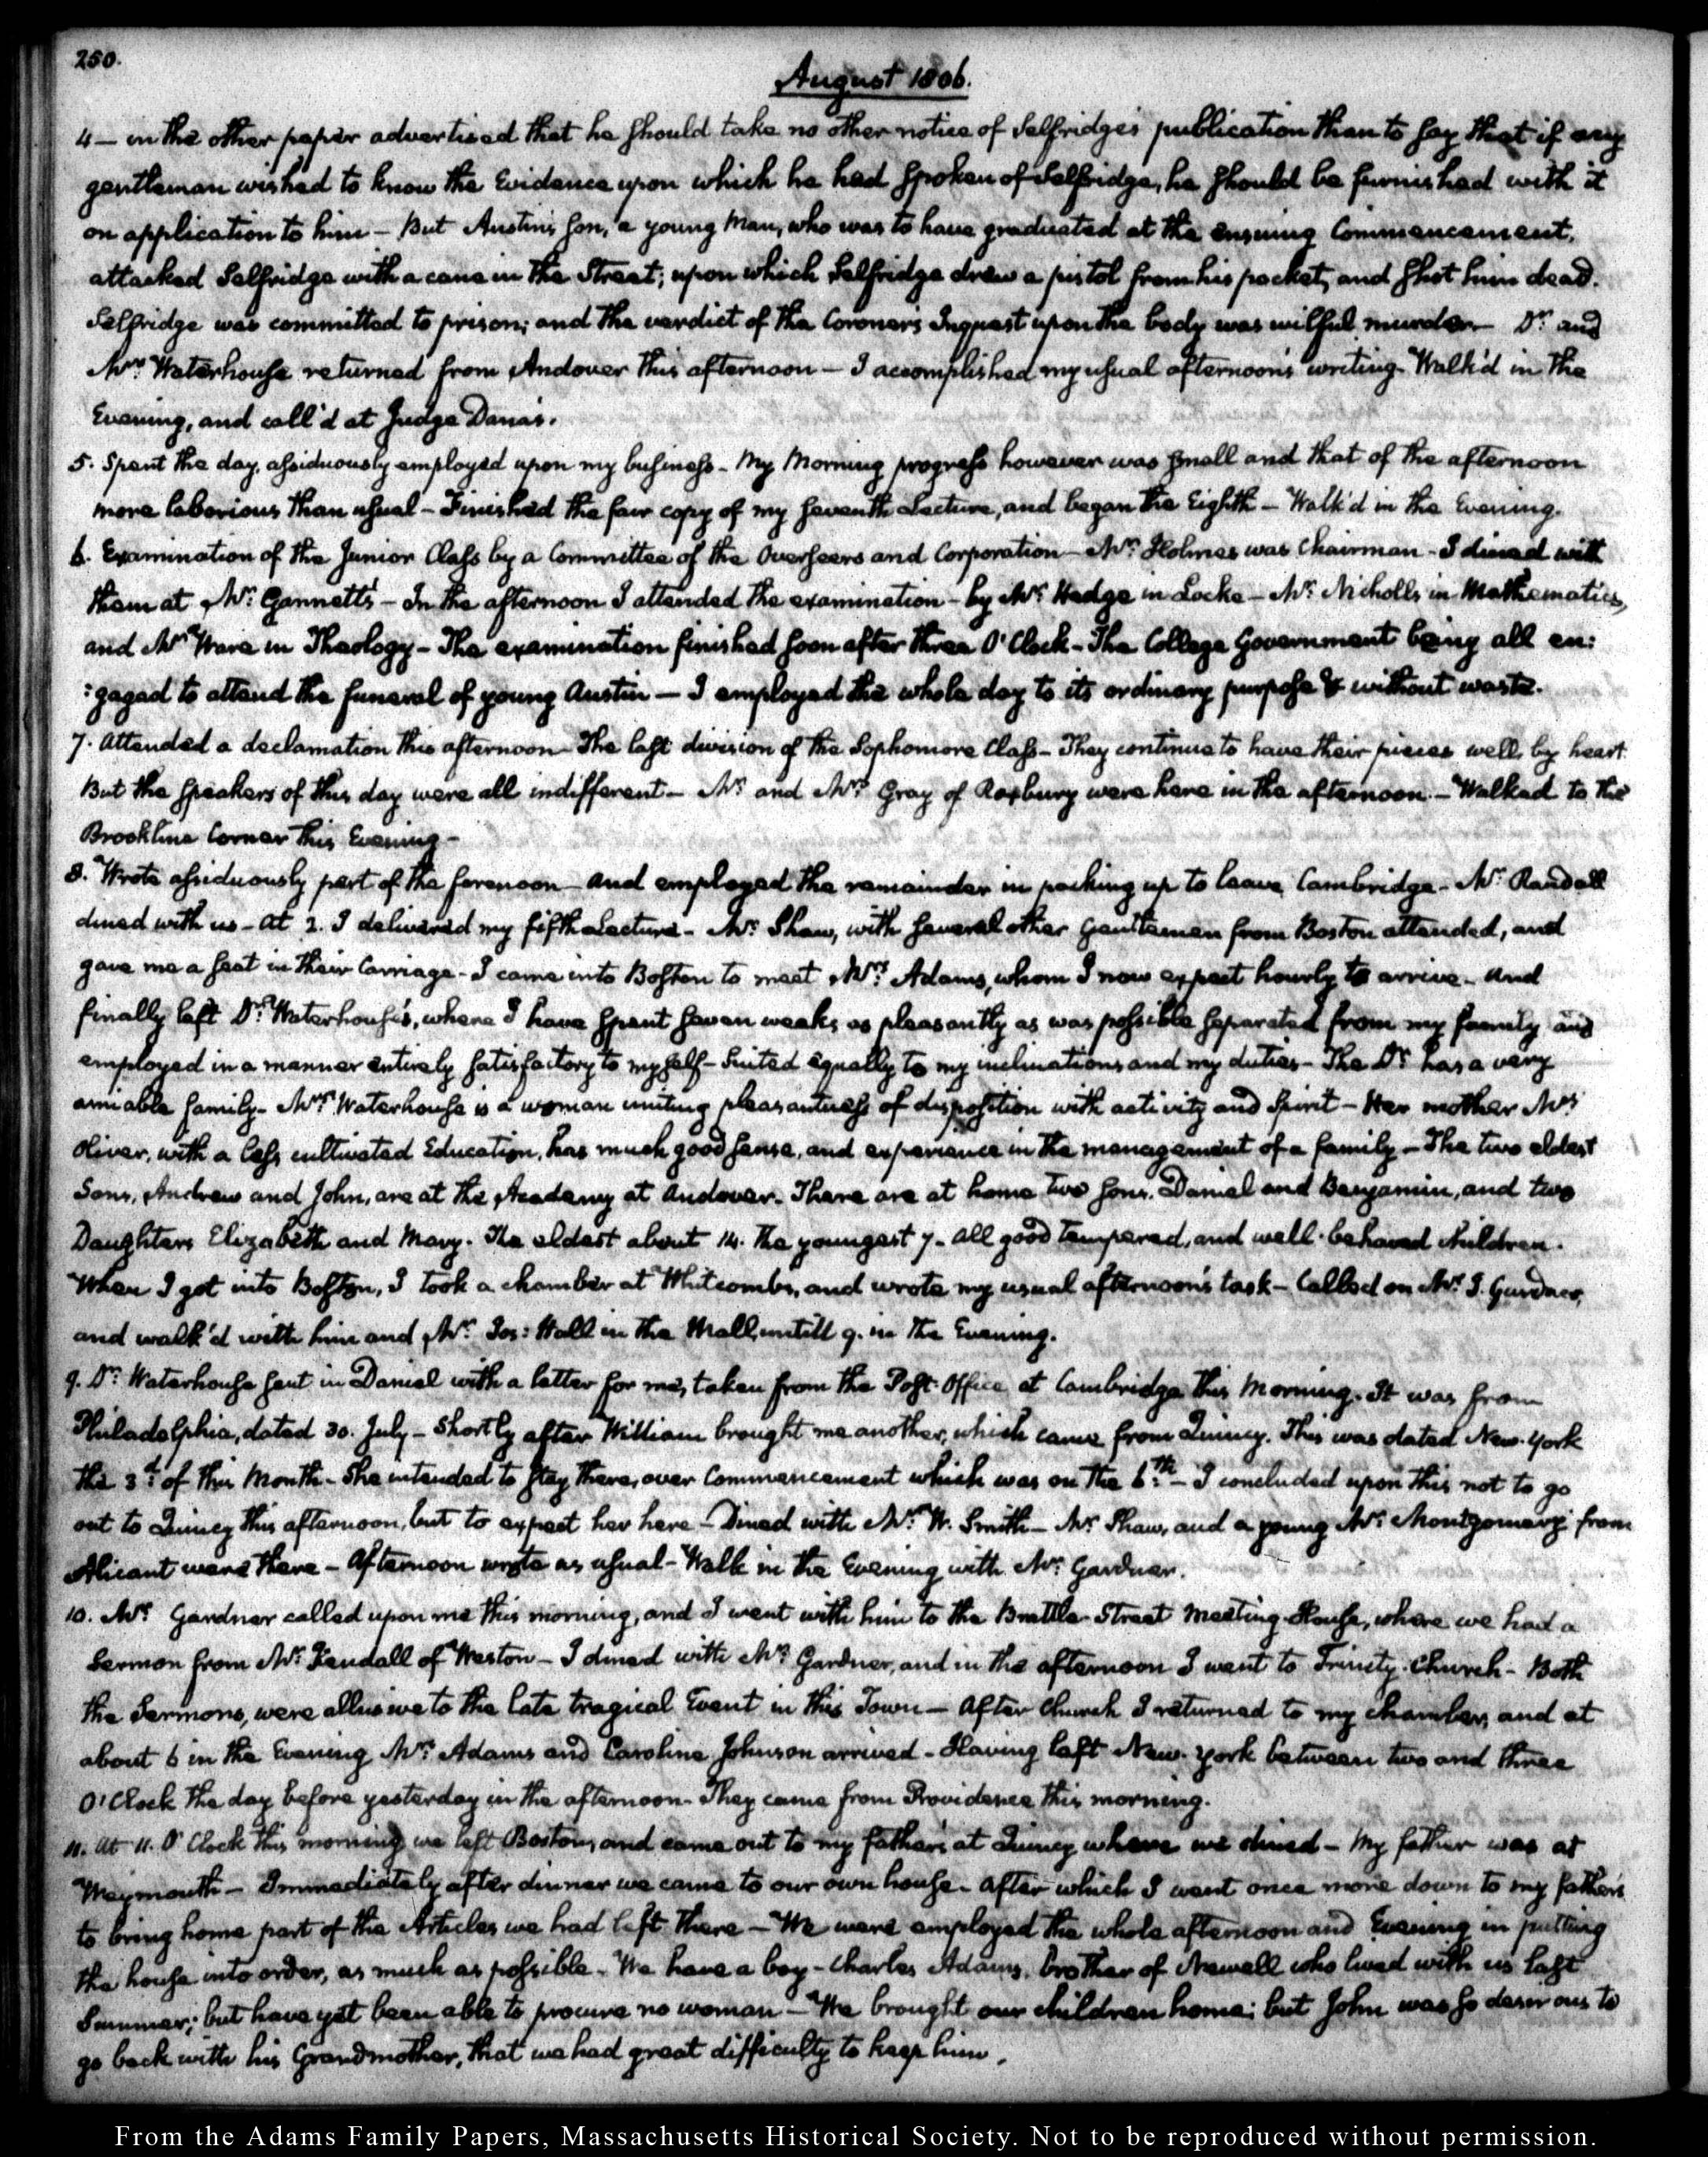 250.
August 1806.
4 — in the other paper advertised that he should take no other notice of Selfridge's publication than to say that if any
gentleman wished to know the Evidence upon which he had spoken of Selfridge, he should be furnished with it
on application to him — But Austin's son, a young Man, who was to have graduated at the ensuing Commencement,
attacked Selfridge with a cane in the Street; upon which Selfridge drew a pistol from his pocket, and shot him dead.
Selfridge was committed to prison; and the verdict of the Coroner's Inquest upon the body was wilful murder — Dr. and
Mrs. Waterhouse returned from Andover this afternoon — I accomplished my usual afternoon's writing. Walk'd in the
Evening, and call'd at Judge Dana's.
5. Spent the day, assiduously employed upon my business — My Morning progress however was small and that of the afternoon
more laborious than usual — Finished the fair copy of my seventh Lecture, and began the Eighth — Walk'd in the Evening.
6. Examination of the Junior Class by a Committee of the Overseers and Corporation — Mr. Holmes was Chairman — I dined with
them at Mr. Gannett's — In the afternoon I attended the examination — by Mr. Hedge in Locke — Mr. Nicholls in Mathematics,
and Mr. Ware in Theology — The examination finished soon after three O'Clock — The College Government being all en:
:gaged to attend the funeral of young Austin — I employed the whole day to its ordinary purpose & without waste.
7. Attended a declamation this afternoon — The last division of the Sophomore Class — They continue to have their pieces well by heart.
But the speakers of this day were all indifferent — Mr. and Mrs. Gray of Roxbury were here in the afternoon. — Walked to the
Brookline Corner this Evening —
8. Wrote assiduously part of the forenoon — and employed the remainder in packing up to leave Cambridge — Mr. Randall
dined with us — At 2. I delivered my fifth Lecture — Mr. Shaw, with several other Gentlemen from Boston attended, and
gave me a seat in their Carriage — I came into Boston to meet Mrs. Adams, whom I now expect hourly to arrive — and
finally left Dr. Waterhouse's, where I have spent seven weeks as pleasantly as was possible separated from my family and
employed in a manner entirely satisfactory to myself — Suited equally to my inclinations and my duties — The Dr. has a very
amiable family — Mrs. Waterhouse is a woman uniting pleasantness of disposition with activity and Spirit — Her mother Mrs.
Oliver, with a less cultivated Education, has much good sense, and experience in the management of a family — The two eldest
Sons, Andrew and John, are at the Academy at Andover. There are at home two sons, Daniel and Benjamin, and two
Daughters Elizabeth and Mary. The eldest about 14. the youngest 7 — all good tempered, and well-behaved children.
When I got into Boston, I took a chamber at Whitcombs, and wrote my usual afternoon's task — Called on Mr. J. Gardner,
and walk'd with him and Mr. Jos: Hall in the Mall, untill 9. in the Evening.
9. Dr. Waterhouse sent in Daniel with a letter for me, taken from the Post-Office at Cambridge this Morning. It was from
Philadelphia, dated 30. July — Shortly after William brought me another, which came from Quincy. This was dated New-York
the 3d. of this Month — She intended to stay there, over Commencement which was on the 6th. — I concluded upon this not to go
out to Quincy this afternoon, but to expect her here — Dined with Mr. W. Smith — Mr. Shaw, and a young Mr. Montgomery from
Alicant were there — Afternoon wrote as usual — Walk in the Evening with Mr. Gardner.
10. Mr. Gardner called upon me this morning, and I went with him to the Brattle-Street Meeting-House, where we had a
Sermon from Mr. Kendall of Weston — I dined with Mr. Gardner, and in the afternoon I went to Trinity-Church — Both
the Sermons, were allusive to the late tragical Event in this Town — After Church I returned to my chamber, and at
about 6 in the Evening Mrs. Adams and Caroline Johnson arrived — Having left New-York between two and three
O'Clock the day before yesterday in the afternoon — They came from Providence this morning.
11. At 11. O'Clock this morning we left Boston, and came out to my father's at Quincy where we dined — My father was at
Weymouth — Immediately after dinner we came to our own house — After which I went once more down to my father's
to bring home part of the Articles we had left there — We were employed the whole afternoon and Evening in putting
the house into order, as much as possible — We have a boy — Charles Adams, brother of Newell who lived with us last
Summer; but have yet been able to procure no woman — We brought our children home; but John was so desirous to
go back with his Grandmother, that we had great difficulty to keep him.
From the Adams Family Papers, Massachusetts Historical Society. Not to be reproduced without permission.